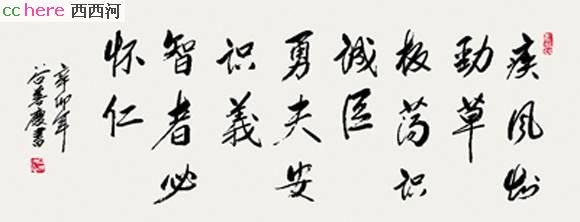 cchere 西西河
疾风知
勁草
板荡识
誠臣
勇夫安
识義
智者必
怀仁
辛卯年
谷善慶書